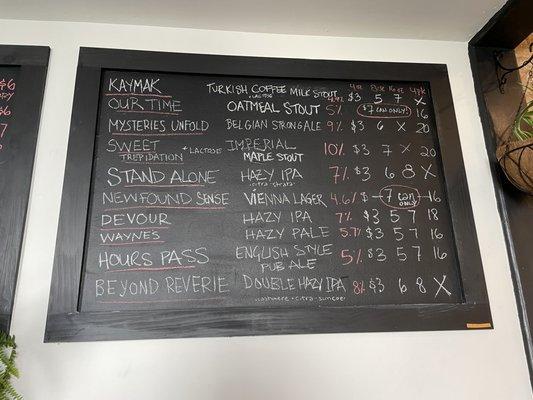 4oz 8.5oz 16oz 4pk
KAYMAK TURKISH COFFEE MILK STOUT $3 5 7 X
+LACTOSE
OUR TIME OATMEAL STOUT 5% ($7 CAN ONLY!) 16
MYSTERIES UNFOLD BELGIAN STRONG ALE 9% $3 6 X 20
SWEET TREPIDATION +LACTOSE IMPERIAL MAPLE STOUT 10% $3 7 X 20
STAND ALONE HAZY IPA 7% $3 6 8 X
NEWFOUND SENSE VIENNA LAGER 4.6% $ - 7 CAN ONLY - 16
DEVOUR HAZY IPA 7% $3 5 7 18
WAYNES HAZY PALE 5.7% $3 5 7 16
HOURS PASS ENGLISH STYLE PUB ALE 5% $3 5 7 16
BEYOND REVERIE DOUBLE HAZY IPA 8% $3 6 8 X